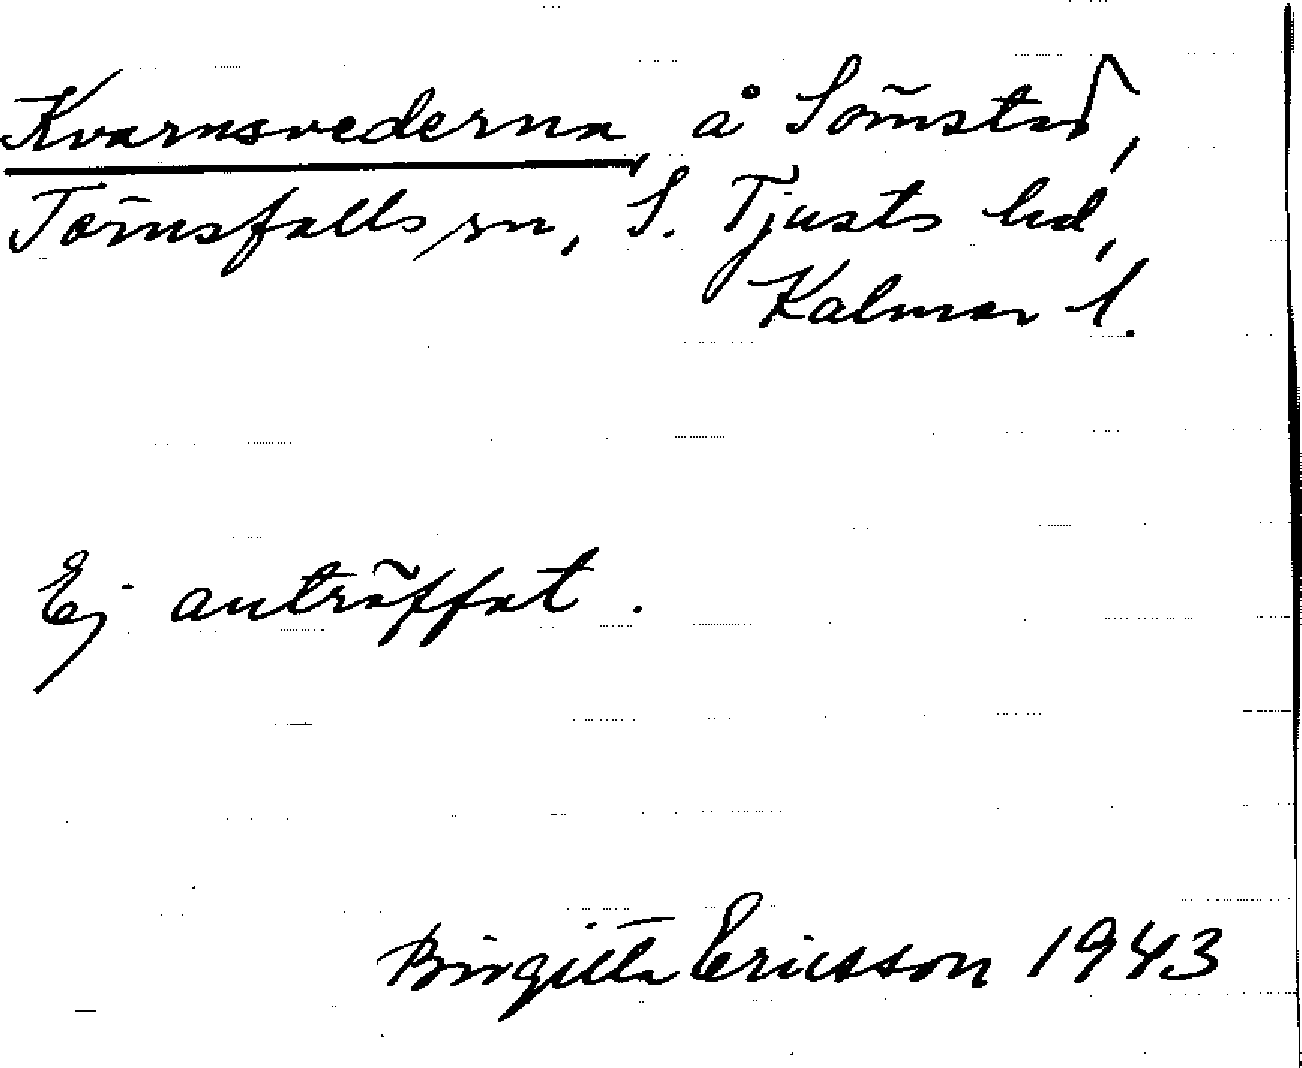 Kvarnsvederna, å Sörnstad,
Törnsfalls sn, S. Tjusts hd,
Kalmar l.
Ej anträffat.
Birgitta Ericsson 1943